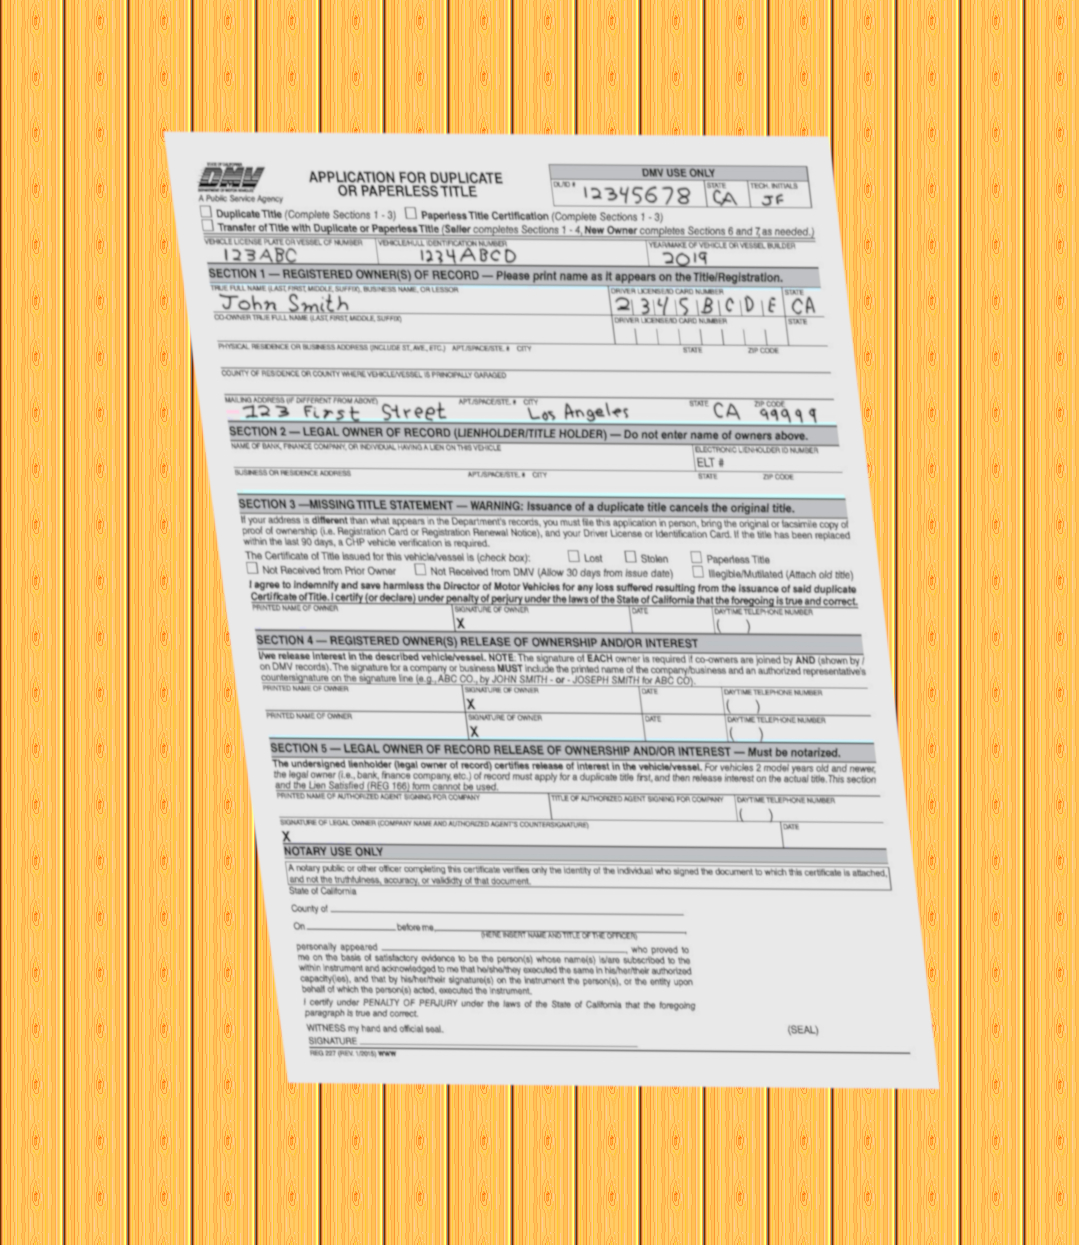 STATE OF CALIFORNIA
DMV
DEPARTMENT OF MOTOR VEHICLES
A Public Service Agency
APPLICATION FOR DUPLICATE
OR PAPERLESS TITLE
DMV USE ONLY
DL/ID # 12345678 STATE CA TECH. INITIALS JF
Duplicate Title (Complete Sections 1 - 3) Paperless Title Certification (Complete Sections 1 - 3)
Transfer of Title with Duplicate or Paperless Title (Seller completes Sections 1 - 4, New Owner completes Sections 6 and 7, as needed.)
VEHICLE LICENSE PLATE OR VESSEL CF NUMBER VEHICLE/HULL IDENTIFICATION NUMBER YEAR/MAKE OF VEHICLE OR VESSEL BUILDER
123ABC 1234ABCD 2019
SECTION 1 — REGISTERED OWNER(S) OF RECORD — Please print name as it appears on the Title/Registration.
TRUE FULL NAME (LAST, FIRST, MIDDLE, SUFFIX), BUSINESS NAME, OR LESSOR DRIVER LICENSE/ID CARD NUMBER STATE
John Smith 2345BCDE CA
CO-OWNER TRUE FULL NAME (LAST, FIRST, MIDDLE, SUFFIX) DRIVER LICENSE/ID CARD NUMBER STATE
PHYSICAL RESIDENCE OR BUSINESS ADDRESS (INCLUDE ST., AVE., ETC.) APT./SPACE/STE. # CITY STATE ZIP CODE
COUNTY OF RESIDENCE OR COUNTY WHERE VEHICLE/VESSEL IS PRINCIPALLY GARAGED
MAILING ADDRESS (IF DIFFERENT FROM ABOVE) APT./SPACE/STE. # CITY STATE ZIP CODE
123 First Street Los Angeles CA 99999
SECTION 2 — LEGAL OWNER OF RECORD (LIENHOLDER/TITLE HOLDER) — Do not enter name of owners above.
NAME OF BANK, FINANCE COMPANY, OR INDIVIDUAL HAVING A LIEN ON THIS VEHICLE ELECTRONIC LIENHOLDER ID NUMBER
ELT #
BUSINESS OR RESIDENCE ADDRESS APT./SPACE/STE. # CITY STATE ZIP CODE
SECTION 3 —MISSING TITLE STATEMENT — WARNING: Issuance of a duplicate title cancels the original title.
If your address is different than what appears in the Department's records, you must file this application in person, bring the original or facsimile copy of
proof of ownership (i.e. Registration Card or Registration Renewal Notice), and your Driver License or Identification Card. If the title has been replaced
within the last 90 days, a CHP vehicle verification is required.
The Certificate of Title issued for this vehicle/vessel is (check box): Lost Stolen Paperless Title
Not Received from Prior Owner Not Received from DMV (Allow 30 days from issue date) Illegible/Mutilated (Attach old title)
I agree to indemnify and save harmless the Director of Motor Vehicles for any loss suffered resulting from the issuance of said duplicate
Certificate of Title. I certify (or declare) under penalty of perjury under the laws of the State of California that the foregoing is true and correct.
PRINTED NAME OF OWNER SIGNATURE OF OWNER DATE DAYTIME TELEPHONE NUMBER
X ( )
SECTION 4 — REGISTERED OWNER(S) RELEASE OF OWNERSHIP AND/OR INTEREST
I/we release interest in the described vehicle/vessel. NOTE: The signature of EACH owner is required if co-owners are joined by AND (shown by /
on DMV records). The signature for a company or business MUST include the printed name of the company/business and an authorized representative's
countersignature on the signature line (e.g., ABC CO., by JOHN SMITH - or - JOSEPH SMITH for ABC CO).
PRINTED NAME OF OWNER SIGNATURE OF OWNER DATE DAYTIME TELEPHONE NUMBER
X ( )
PRINTED NAME OF OWNER SIGNATURE OF OWNER DATE DAYTIME TELEPHONE NUMBER
X ( )
SECTION 5 — LEGAL OWNER OF RECORD RELEASE OF OWNERSHIP AND/OR INTEREST — Must be notarized.
The undersigned lienholder (legal owner of record) certifies release of interest in the vehicle/vessel. For vehicles 2 model years old and newer,
the legal owner (i.e., bank, finance company, etc.) of record must apply for a duplicate title first, and then release interest on the actual title. This section
and the Lien Satisfied (REG 166) form cannot be used.
PRINTED NAME OF AUTHORIZED AGENT SIGNING FOR COMPANY TITLE OF AUTHORIZED AGENT SIGNING FOR COMPANY DAYTIME TELEPHONE NUMBER
( )
SIGNATURE OF LEGAL OWNER (COMPANY NAME AND AUTHORIZED AGENT'S COUNTERSIGNATURE) DATE
X
NOTARY USE ONLY
A notary public or other officer completing this certificate verifies only the identity of the individual who signed the document to which this certificate is attached,
and not the truthfulness, accuracy, or validity of that document.
State of California
County of
On before me,
(HERE INSERT NAME AND TITLE OF THE OFFICER)
personally appeared , who proved to
me on the basis of satisfactory evidence to be the person(s) whose name(s) is/are subscribed to the
within instrument and acknowledged to me that he/she/they executed the same in his/her/their authorized
capacity(ies), and that by his/her/their signature(s) on the instrument the person(s), or the entity upon
behalf of which the person(s) acted, executed the instrument.
I certify under PENALTY OF PERJURY under the laws of the State of California that the foregoing
paragraph is true and correct.
WITNESS my hand and official seal. (SEAL)
SIGNATURE
REG 227 (REV. 1/2015) WWW